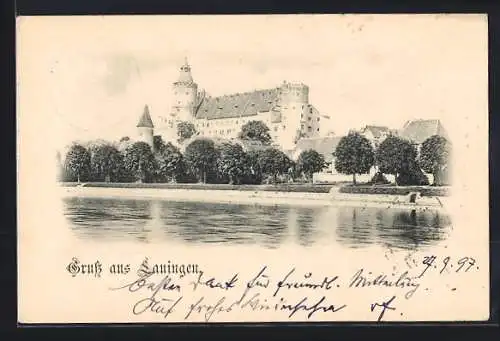 Gruß aus Lauingen.
27.9.97.
Besten Dank für freundl. Mittheilung
Auf frohes Wiedersehen